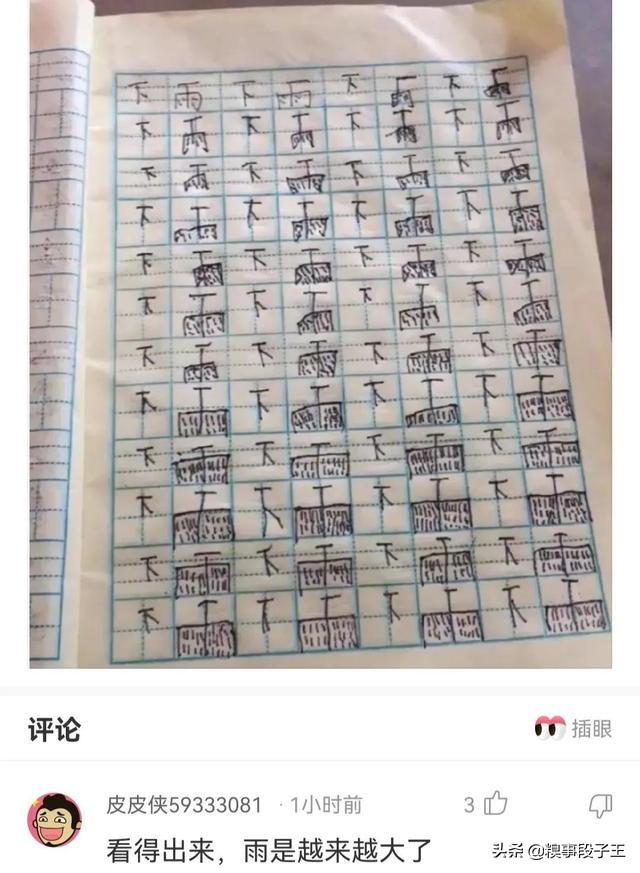 下雨下雨下雨下雨
下雨下雨下雨下雨
下雨下雨下雨下雨
下雨下雨下雨下雨
下雨下雨下雨下雨
下雨下雨下雨下雨
下雨下雨下雨下雨
下雨下雨下雨下雨
下雨下雨下雨下雨
下雨下雨下雨下雨
下雨下雨下雨下雨
下雨下雨下雨下雨
评论 插眼
皮皮侠59333081 · 1小时前 3
看得出来，雨是越来越大了
头条 @糗事段子王